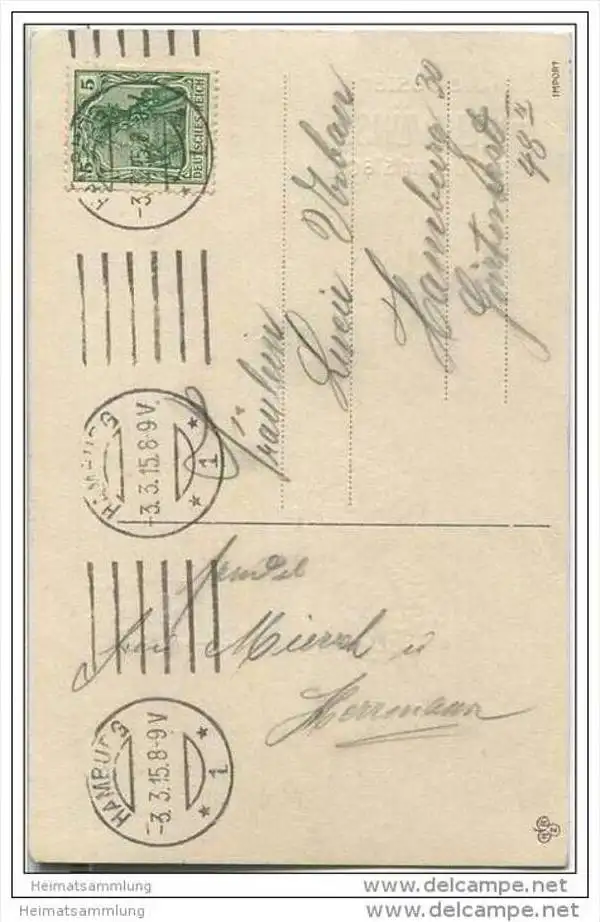 5 5
DEUTSCHES REICH
IMPORT
Fräulein
Lucie
Hamburg 30
48 II
HAMBURG
-3.3.15.8-9V.
* 1 *
HAMBURG
-3.3.15.8-9V
* 1 *
Mierch u
Herrmann
Heimatsammlung
Heimatsammlung
www.delcampe.net
www.delcampe.net